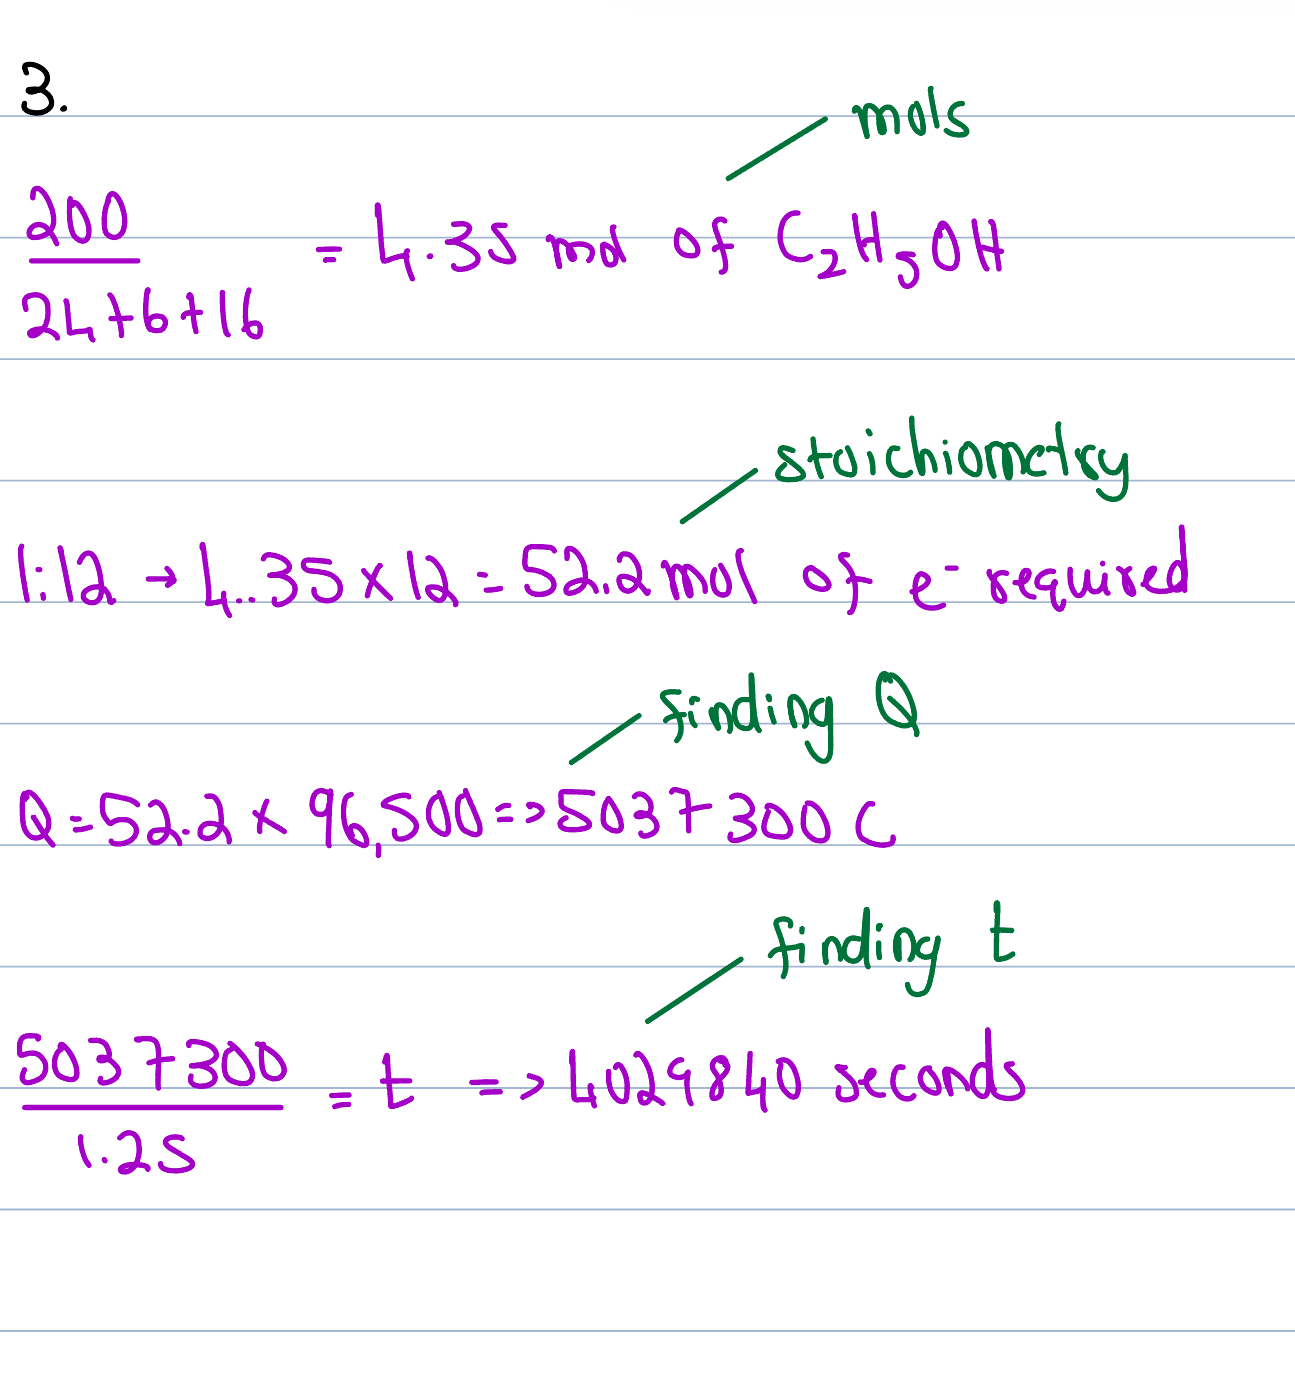 3.
mols
200
= 4.35 mol of C₂H₅OH
24+6+16
stoichiometry
1:12 → 4..35 x 12 = 52.2 mol of e⁻ required
finding Q
Q = 52.2 x 96,500 => 5037300 C
finding t
5037300
= t => 4029840 seconds
1.25